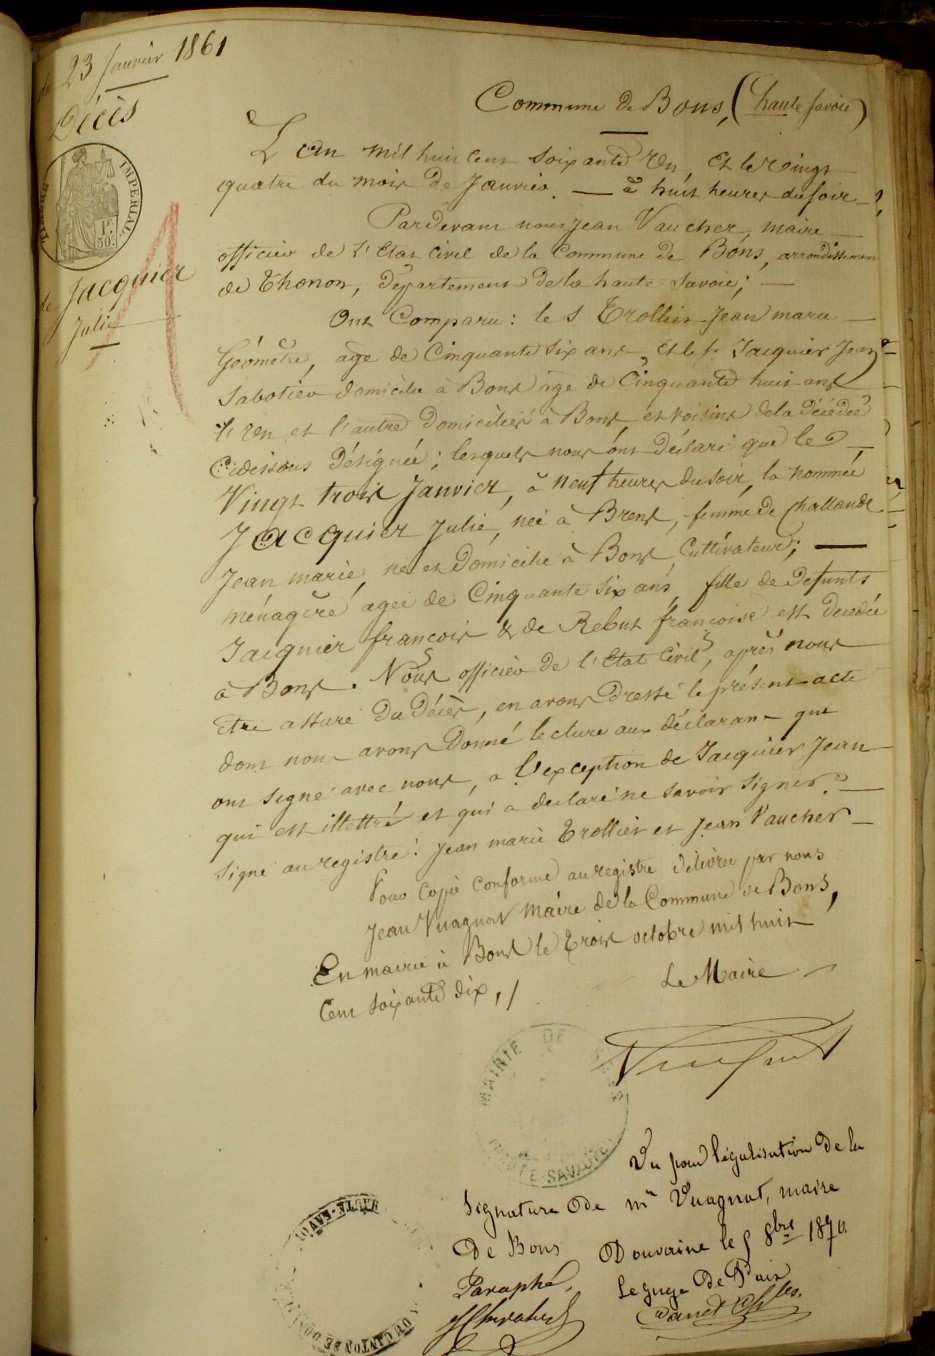 23 Janvier 1861
Décès
IMPERIAL
1F
50c
de Jacquier
Julie
Commune de Bons, (haute Savoie)
L'an mil huit cent soixante Un, et le vingt
quatre du mois de Janvier — à huit heures du soir —
Pardevant nous Jean Vaucher, maire
officier de l'Etat Civil de la Commune de Bons, arrondissement
de Thonon, Département de la haute Savoie; —
Ont Comparu: le S Trollier Jean marie —
Géomètre, agé de Cinquante six ans, et le s. Jacquier Jean
Sabotier domicilié à Bons agé de Cinquante huit ans
l'Un et l'autre Domiciliés à Bons et voisins de la Décédée
Cidessous Désignée; lesquels nous ont Déclaré que le
Vingt trois Janvier, à neuf heures du soir, la nommée
Jacquier Julie, née à Brens, femme de Challande
Jean marie, né et Domicilié à Bons Cultivateur; —
ménagère agée de Cinquante six ans, fille de defunts
Jacquier françois & de Rebut françoise est décédée
à Bons. Nous officier de l'Etat Civil, après nous
être assuré du Décès, en avons Dressé le présent acte
dont nous avons Donné lecture aux déclarant que
ont signé avec nous, a l'exception de Jacquier Jean
qui est illettré et qui a declaré ne savoir signer. —
Signé au registre: Jean marie Trollier et Jean Vaucher —
Pour Copie Conforme au registre délivrée par nous
Jean Vuagnat Maire de la Commune de Bons,
En mairie à Bons le trois octobre mil huit
Cent soixante dix, /
Le Maire
MAIRIE DE BONS
HAUTE-SAVOIE
Vu pour légalisation de la
Signature de mr Vuagnat, maire
De Bons Douvaine le 5 8bre 1870.
Paraphé, Le Juge De Paix